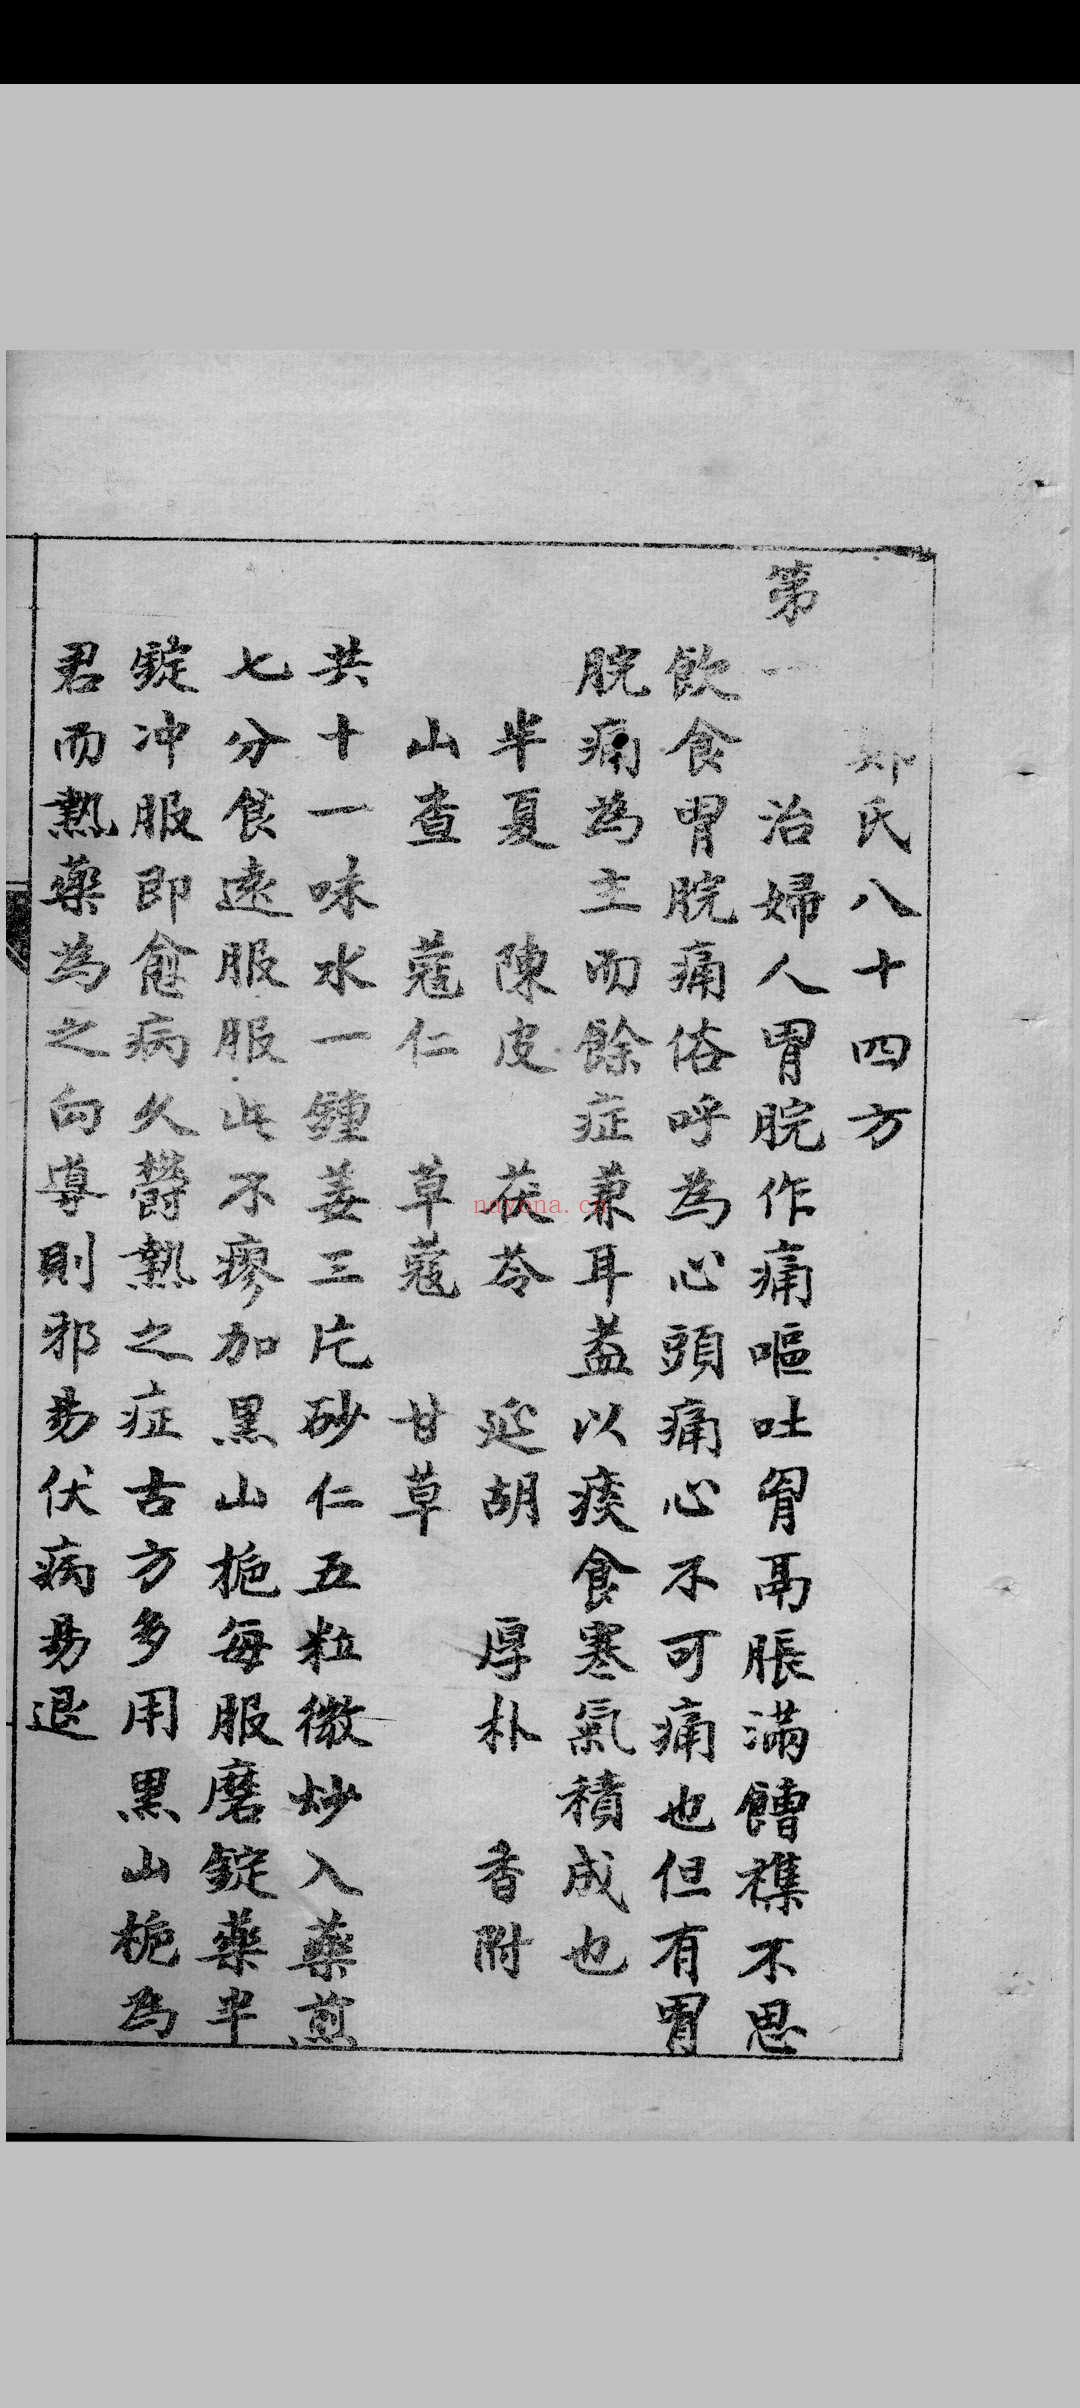 鄭氏八十四方
第一　治婦人胃脘作痛嘔吐胷鬲脹滿饋襍不思
飲食胃脘痛俗呼為心頭痛心不可痛也但有胃
脘痛為主而餘症兼耳蓋以痰食寒氣積成也
半夏　陳皮　茯苓　延胡　厚朴　香附
山查　蔻仁　草蔻　甘草
共十一味水一鍾姜三片砂仁五粒微炒入藥煎
七分食遠服服此不瘳加黑山梔每服磨錠藥半
錠冲服即愈病久欝熱之症古方多用黑山梔為
君而熱藥為之向導則邪易伏病易退
nayona.cn